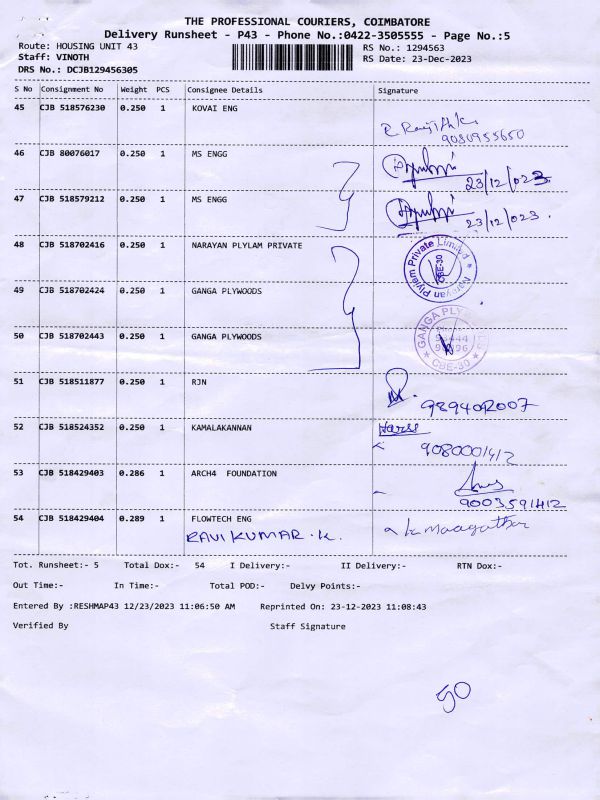 THE PROFESSIONAL COURIERS, COIMBATORE
Delivery Runsheet - P43 - Phone No.:0422-3505555 - Page No.:5
Route: HOUSING UNIT 43
RS No.: 1294563
Staff: VINOTH
RS Date: 23-Dec-2023
DRS No.: DCJB129456305
S No Consignment No Weight PCS Consignee Details Signature
45 CJB 518576230 0.250 1 KOVAI ENG
9080955650
46 CJB 80076017 0.250 1 MS ENGG
23/12/023
47 CJB 518579212 0.250 1 MS ENGG
23/12/023.
48 CJB 518702416 0.250 1 NARAYAN PLYLAM PRIVATE
Narayan Plylam Private Limited * CBE-30
49 CJB 518702424 0.250 1 GANGA PLYWOODS
50 CJB 518702443 0.250 1 GANGA PLYWOODS
GANGA PLY
* CBE-30 *
51 CJB 518511877 0.250 1 RJN
9894092007
52 CJB 518524352 0.250 1 KAMALAKANNAN
9080001412
53 CJB 518429403 0.286 1 ARCH4 FOUNDATION
9003591412
54 CJB 518429404 0.289 1 FLOWTECH ENG
RAVIKUMAR.K.
Tot. Runsheet:- 5 Total Dox:- 54 I Delivery:- II Delivery:- RTN Dox:-
Out Time:- In Time:- Total POD:- Delvy Points:-
Entered By :RESHMAP43 12/23/2023 11:06:50 AM Reprinted On: 23-12-2023 11:08:43
Verified By Staff Signature
50